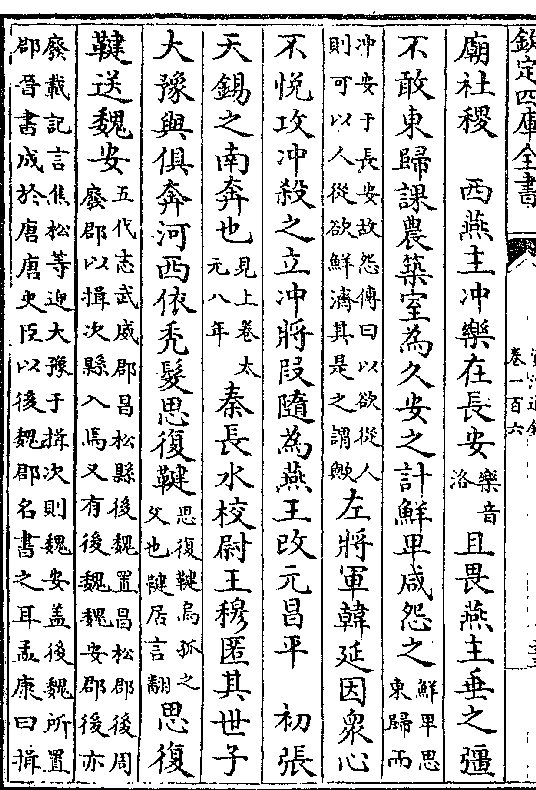 欽定四庫全書
卷一百六
廟社稷　西燕主沖樂在長安樂音洛且畏燕主垂之彊
不敢東歸課農築室為久安之計鮮卑咸怨之鮮卑思東歸而
沖安于長安故怨傳曰以欲從人則可以人從欲鮮濟其是之謂歟左將軍韓延因衆心
不悅攻沖殺之立沖將段隨為燕王改元昌平　初張
天錫之南奔也見上卷太元八年秦長水校尉王穆匿其世子
大豫與俱奔河西依禿髮思復鞬思復鞬烏孤之父也鞬居言翻思復
鞬送魏安五代志武威郡昌松縣後魏置昌松郡後周廢郡以揖次縣入焉又有後魏魏安郡後亦
廢載記言焦松等迎大豫于揖次則魏安盖後魏所置郡晉書成於唐唐史臣以後魏郡名書之耳孟康曰揖